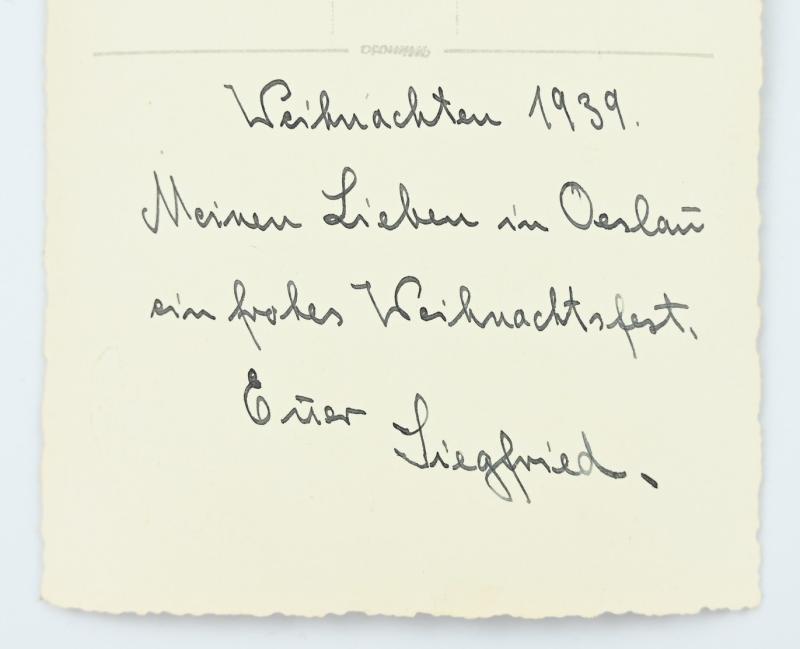 Weihnachten 1939.
Meinen Lieben in Oeslau
ein frohes Weihnachtsfest.
Euer
Siegfried.